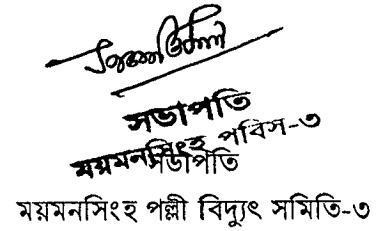 সভাপতি
ময়মনসিংহ পবিস-৩
সভাপতি
ময়মনসিংহ পল্লী বিদ্যুৎ সমিতি-৩